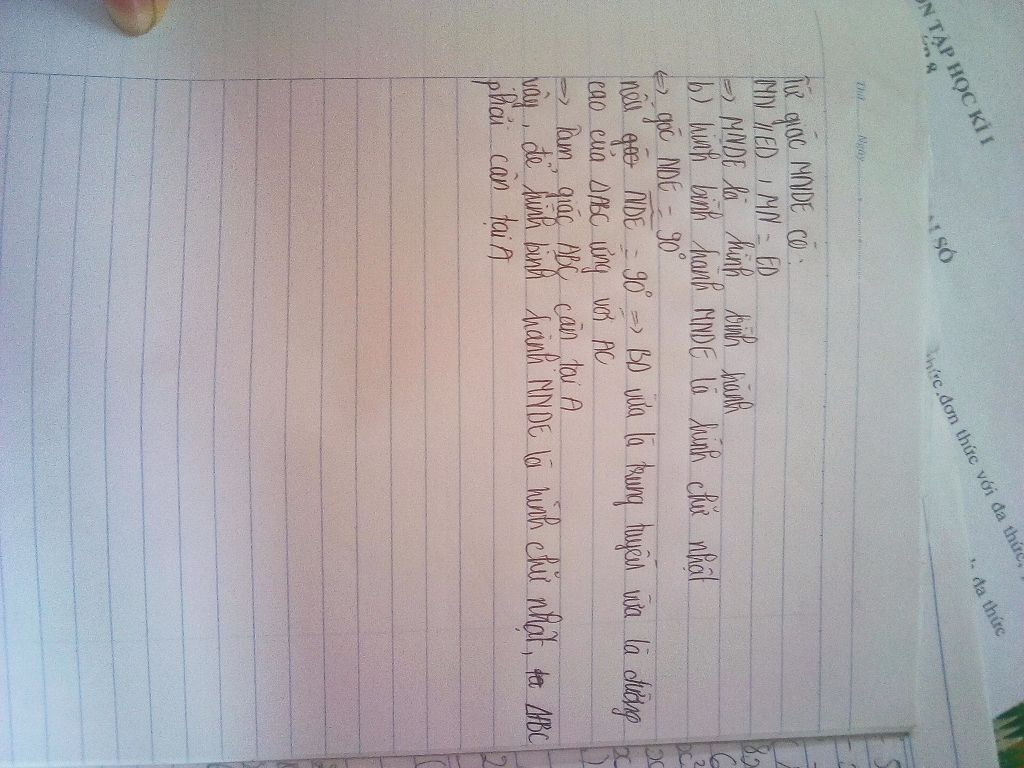 Thứ Ngày
Tứ giác MNDE có:
MN // ED, MN = ED
=> MNDE là hình bình hành
b) hình bình hành MNDE là hình chữ nhật
<=> góc NDE = 90°
nếu góc NDE = 90° => BD vừa là trung tuyến vừa là đường
cao của ΔABC ứng với AC
=> Tam giác ABC cân tại A
vậy, để hình bình hành MNDE là hình chữ nhật, ΔABC
phải cân tại A
ÔN TẬP HỌC KÌ I
SỐ
thức, đơn thức với đa thức,
đa thức